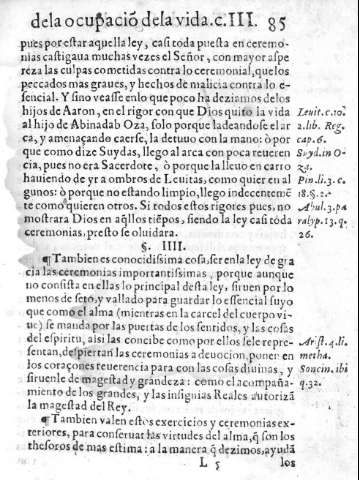 de la ocupació dela vida.c.III. 85
pues por estar aquella ley, casi toda puesta en ceremo-
nias castigaua muchas vezes el Señor, con mayor aspe
reza las culpas cometidas contra lo ceremonial, quelos
peccados mas graues, y hechos de malicia contra lo e-
sencial. Y sino veasse enlo que poco ha deziamos delos
hijos de Aaron, en el rigor con que Dios quito la vida
al hijo de Abinadab Oza, solo porque ladeandose el ar
ca, y amenaçando caerse, la detuuo con la mano: ò por
que como dize Suydas, llego al arca con poca reueren
cia, pues no era Sacerdote, ò porque la lleuo en carro
hauiendo de yr a ombros de Leuitas, como quier en al
gunos: ò porque no estando limpio, llego indecentemẽ
te como quieren otros. Si todos estos rigores pues, no
mostrara Dios en aq̃llos tiẽpos, siendo la ley casi toda
ceremonias, presto se oluidara.
Leuit.c.10.
2.lib. Reg.
cap.6.
Suyd.in O-
za.
Pin.li.3.c.
18.§.2.
Abul.3.pa
ralyp.13.q.
26.
§. IIII.
¶ Tambien es conocidissima cosa, ser en la ley de gra
cia las ceremonias importantissimas, porque aunque
no consista en ellas lo principal desta ley, siruen por lo
menos de seto, y vallado para guardar lo essencial suyo
que como el alma (mientras en la carcel del cuerpo vi-
ue) se manda por las puertas de los sentidos, y las cosas
del espiritu, assi las concibe como por ellos se le repre-
sentan, despiertan las ceremonias a deuocion, ponen en
los coraçones reuerencia para con las cosas diuinas, y
siruenle de magestad y grandeza: como el acompaña-
miento de los grandes, y las insignias Reales autorizã
la magestad del Rey.
Arist.4.li.
metha.
Soncin. ibi
q.32.
¶ Tambien valen estos exercicios y ceremonias ex-
teriores, para conseruar las virtudes del alma, q̃ son los
thesoros de mas estima: a la manera q̃ dezimos, ayudã
L 5 los